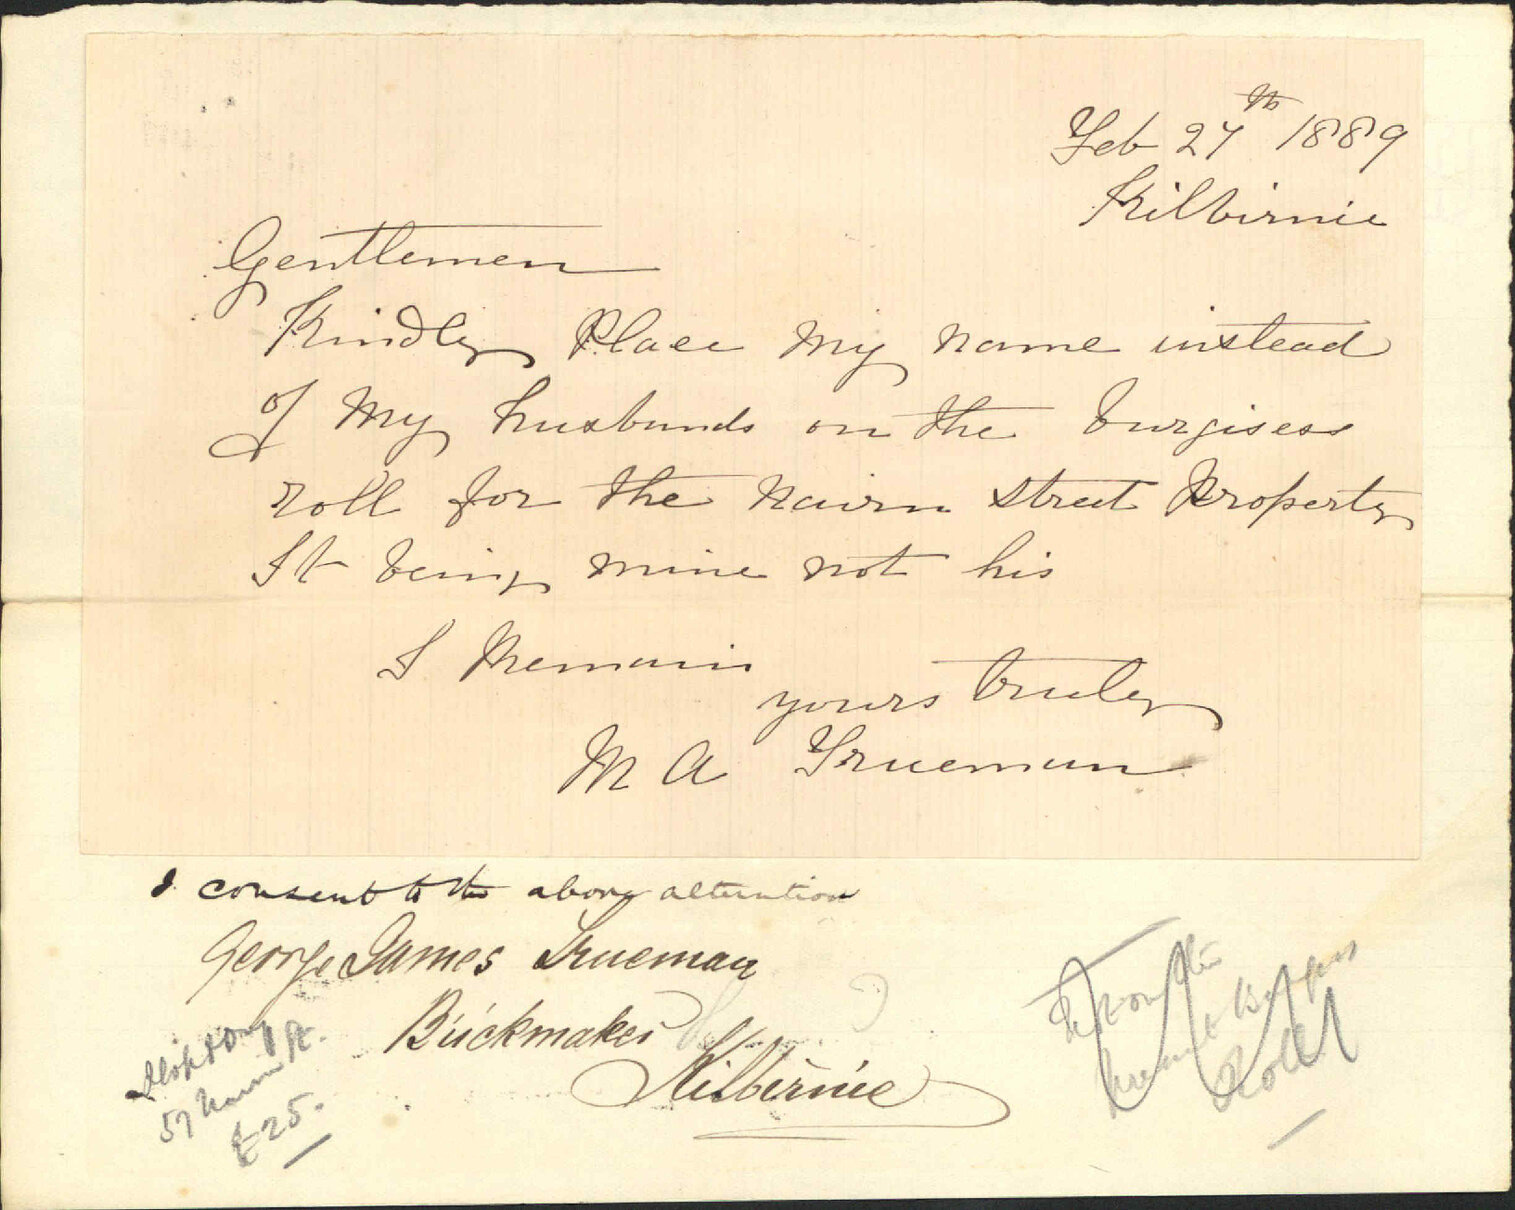 Feb 27th 1889
Kilbirnie
Gentlemen
Kindly Place my name instead
of My husbands on the burgisess
roll for the Nairn Street Property
It being mine not his
I Remain
yours truly
M A Trueman
I consent to the above alteration
George James Trueman
Brickmaker
Kilbirnie
57 Nairn St.
£25.
Roll